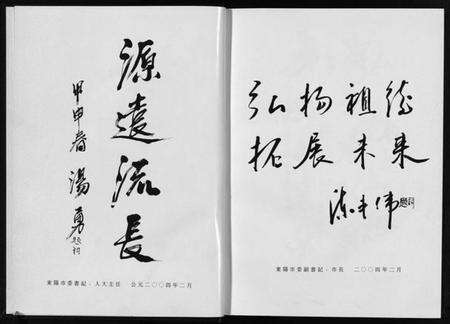 源遠流長
甲申春 湯勇 題詞
東陽市委書記、人大主任 公元二〇〇四年二月
弘揚祖德
拓展未来
陈丰伟 题词
東陽市委副書記、市長 二〇〇四年二月